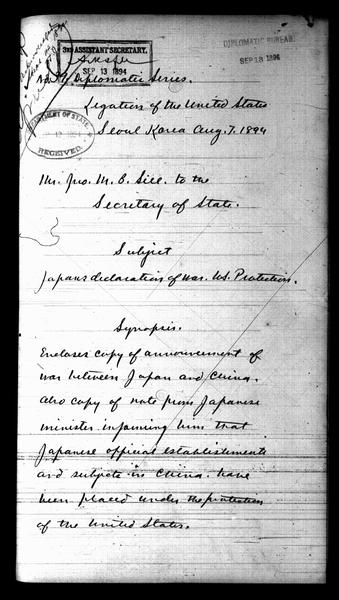 3RD ASSISTANT SECRETARY.
SEP 13 1894
DIPLOMATIC BUREAU.
SEP 13 1894
Diplomatic Series.
Legation of the United States
DEPARTMENT OF STATE
RECEIVED.
Seoul Korea Aug. 7. 1894
Mr. Jno. M. B. Sill. to the
Secretary of State.
Subject
Japan's declaration of war. U.S. Protection.
Synopsis.
Encloses copy of announcement of
war between Japan and China.
Also copy of note from Japanese
minister informing him that
Japanese official establishments
and subjects in China. have
been placed under the protection
of the United States.